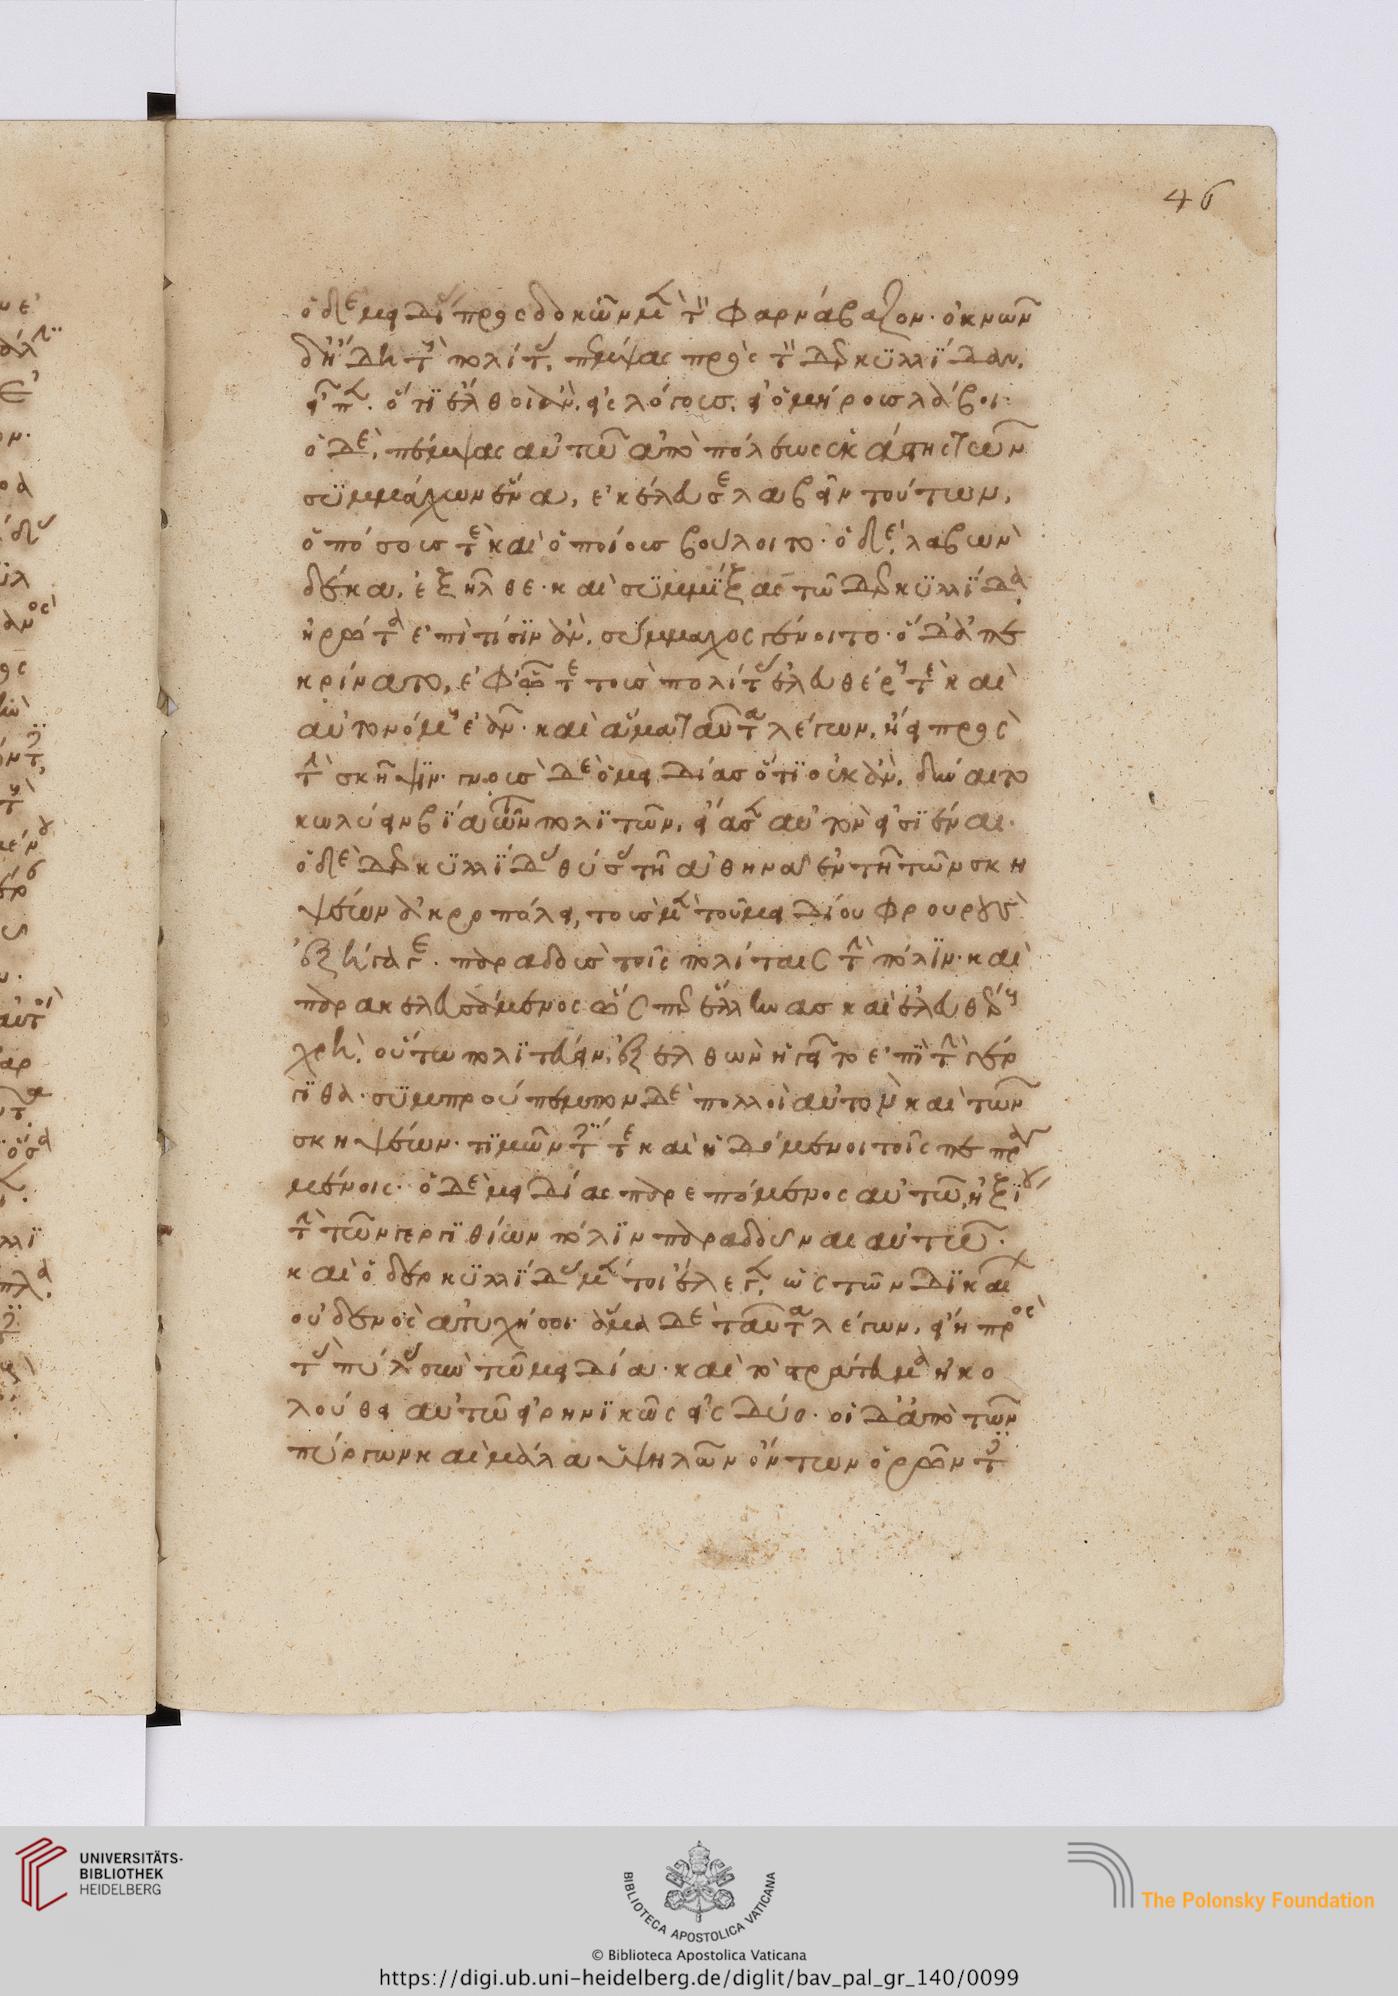 46
ὁ δὲ μειδίας προσδοκῶν μὲν τὸν Φαρνάβαζον· ὀκνῶν
δ' ἤδη τοὺς πολίτας, πέμψας πρὸς τὸν Δερκυλλίδαν,
εἶπεν· ὅτι ἔλθοι ἂν εἰς λόγους, εἰ ὁμήρους λάβοι·
ὁ δὲ, πέμψας αὐτῶ ἀπὸ πόλεως ἑκάστης τῶν
συμμάχων ἕνα, ἐκέλευσε λαβεῖν τούτων,
ὁπόσους τὲ καὶ ὁποίους βούλοιτο· ὁ δὲ λαβὼν
δέκα, ἐξῆλθε· καὶ συμμίξας τῶ Δερκυλλίδα
ἠρώτα ἐπὶ τίσιν ἂν σύμμαχος γένοιτο· ὁ δ' ἀπε
κρίνατο, ἐφ' ὧ τε τοὺς πολίτας ἐλευθέρους τὲ καὶ
αὐτονόμους ἐᾶν· καὶ ἅμα ταῦτα λέγων, ἤει πρὸς
τὴν σκῆψιν· γνοὺς δὲ ὁ μειδίας ὅτι οὐκ ἂν δύναιτο
κωλύειν βία τῶν πολιτῶν, εἴασεν αὐτὸν εἰσιέναι·
ὁ δὲ Δερκυλλίδας θύσας τῆ ἀθηνᾶ ἐν τῆ τῶν σκη
ψίων ἀκροπόλει, τοὺς μὲν τοῦ μειδίου φρουροὺς
ἐξήγαγε· παραδοὺς τοῖς πολίταις τὴν πόλιν· καὶ
παρακελευσάμενος ὥσπερ ἕλληνας καὶ ἐλευθέρους
χρὴ, οὕτω πολιτεύειν, ἐξελθὼν ἡγεῖτο ἐπὶ τὴν γέρ
γιθα· συμπρούπεμπον δὲ πολλοὶ αὐτὸν καὶ τῶν
σκηψίων· τιμῶντές τε καὶ ἡδόμενοι τοῖς πεπραγ
μένοις· ὁ δὲ μειδίας παρεπόμενος αὐτῶ, ἠξίου
τὴν τῶν γεργιθίων πόλιν παραδοῦναι αὐτῶ·
καὶ ὁ δερκυλλίδας μέντοι ἔλεγεν, ὡς τῶν δικαίων
οὐδενὸς ἀτυχήσοι· ἅμα δὲ ταῦτα λέγων, ἤει πρὸς
τὰς πύλας σὺν τῶ μειδία· καὶ τὸ στράτευμα ἠκο
λούθει αὐτῶ εἰρηνικῶς εἰς δύο· οἱ δ' ἀπὸ τῶν
πύργων καὶ μάλα ὑψηλῶν ὄντων ὁρῶντες
UNIVERSITÄTS-
BIBLIOTHEK
HEIDELBERG
BIBLIOTECA APOSTOLICA VATICANA
The Polonsky Foundation
© Biblioteca Apostolica Vaticana
https://digi.ub.uni-heidelberg.de/diglit/bav_pal_gr_140/0099